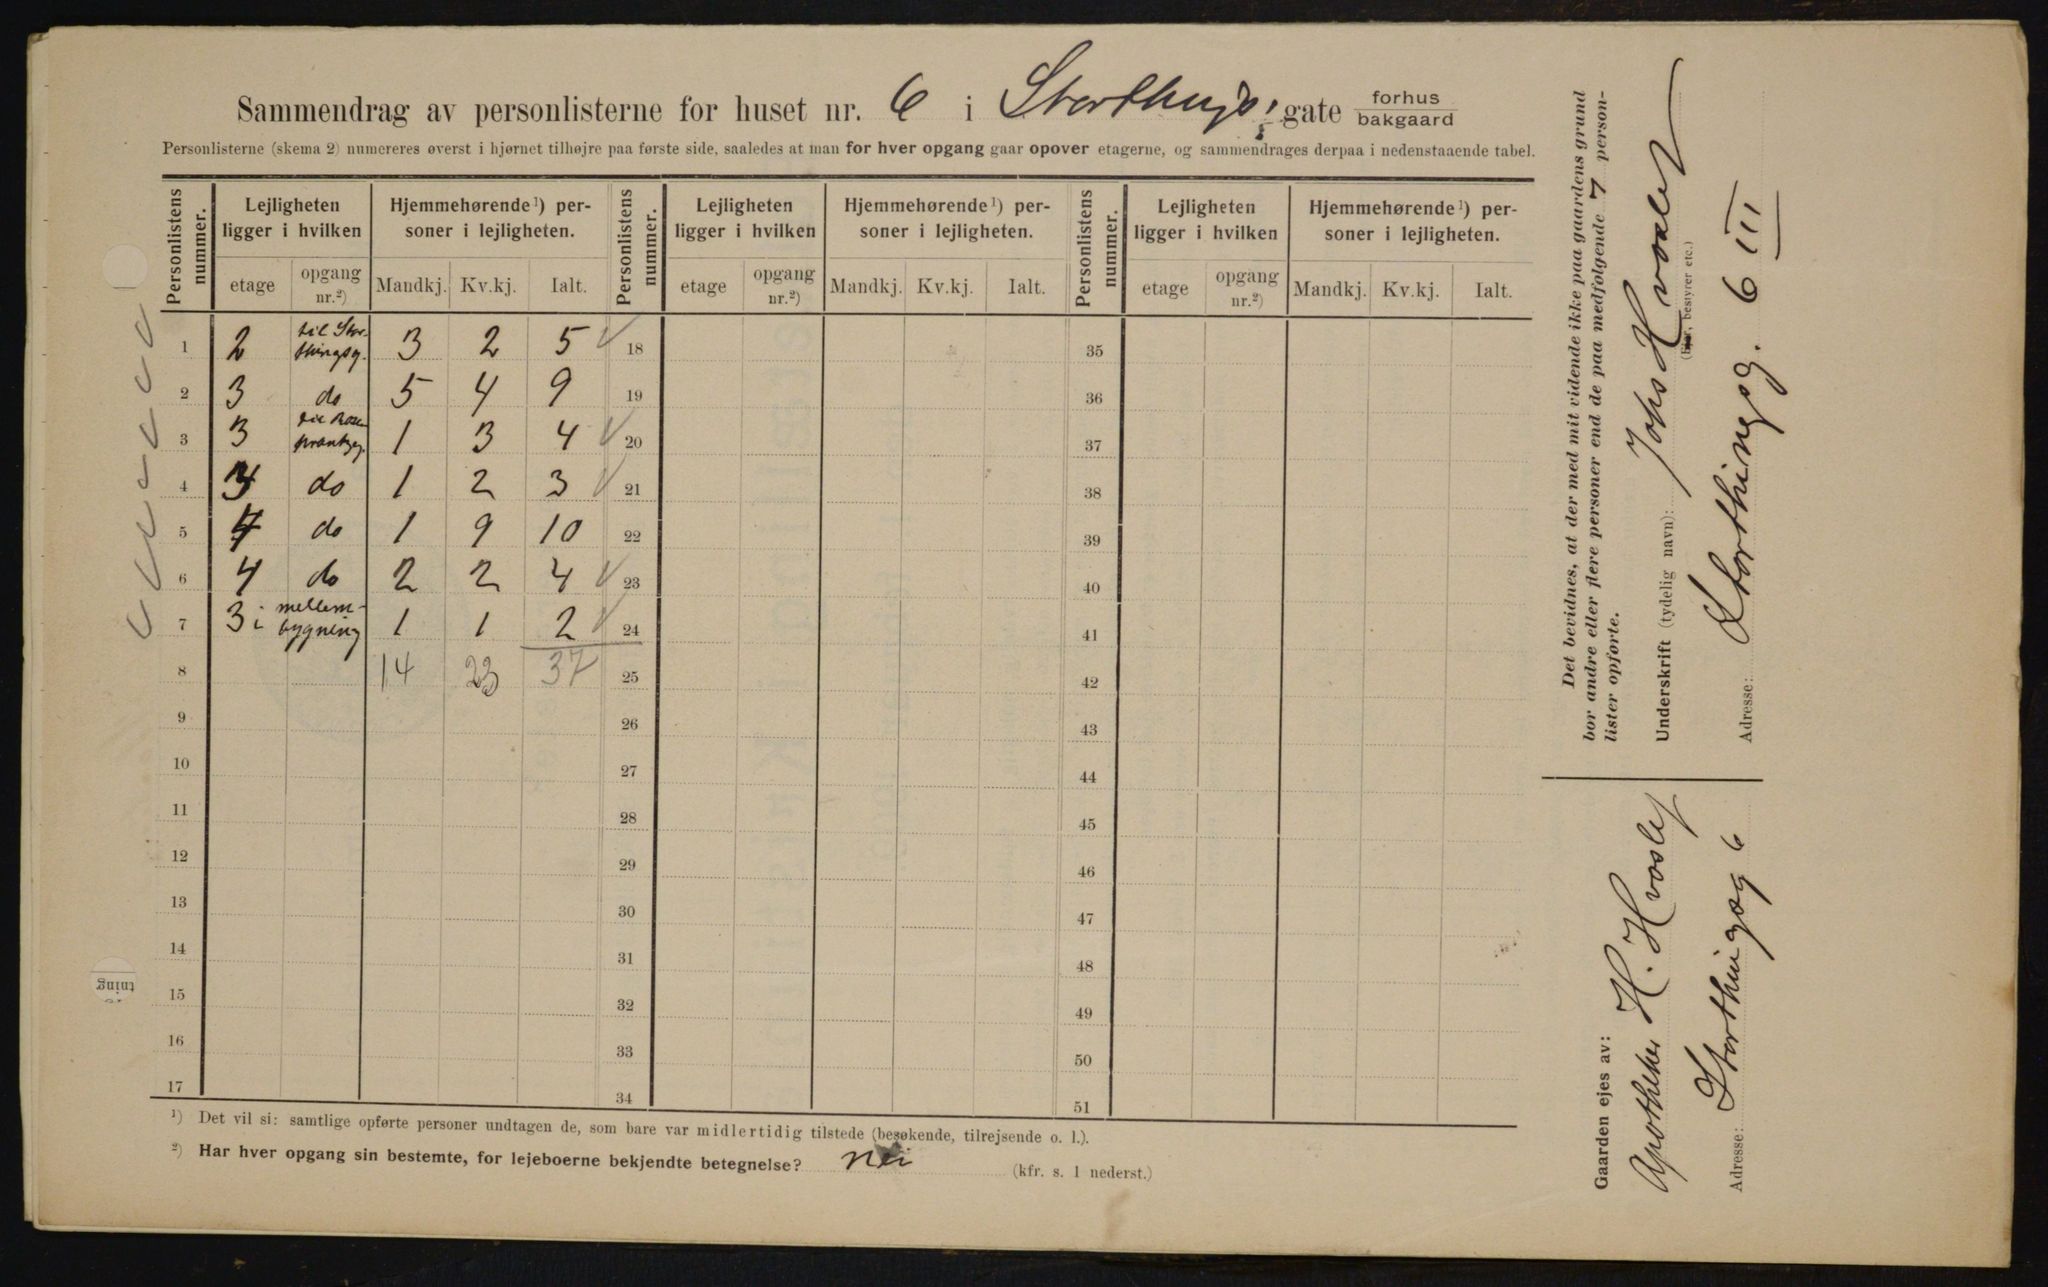 Sammendrag av personlisterne for huset nr. 6 i Storthings gate forhus
bakgaard
Personlisterne (skema 2) numereres øverst i hjørnet tilhøjre paa første side, saaledes at man for hver opgang gaar opover etagerne, og sammendrages derpaa i nedenstaaende tabel.
Personlistens nummer. Lejligheten ligger i hvilken Hjemmehørende¹) personer i lejligheten. Personlistens nummer. Lejligheten ligger i hvilken Hjemmehørende¹) personer i lejligheten. Personlistens nummer. Lejligheten ligger i hvilken Hjemmehørende¹) personer i lejligheten.
etage opgang nr.²) Mandkj. Kv.kj. Ialt. etage opgang nr.²) Mandkj. Kv.kj. Ialt. etage opgang nr.²) Mandkj. Kv.kj. Ialt.
1 2 til Storthingsg. 3 2 5 18 35
2 3 do 5 4 9 19 36
3 3 til Rosenkrantzg. 1 3 4 20 37
4 do 1 2 3 21 38
5 4 do 1 9 10 22 39
6 4 do 2 2 4 23 40
7 3 i mellembygning 1 1 2 24 41
8 14 23 37 25 42
9 26 43
10 27 44
11 28 45
12 29 46
13 30 47
14 31 48
15 32 49
16 33 50
17 34 51
¹) Det vil si: samtlige opførte personer undtagen de, som bare var midlertidig tilstede (besøkende, tilrejsende o. l.).
²) Har hver opgang sin bestemte, for lejeboerne bekjendte betegnelse? nei (kfr. s. 1 nederst.)
Det bevidnes, at der med mit vidende ikke paa gaardens grund
bor andre eller flere personer end de paa medfølgende 7 person-
lister opførte.
Underskrift (tydelig navn): Johs Hvoslef
(Ejer, bestyrer etc.)
Adresse: Storthingsg. 6 III
Gaarden ejes av:
Apotheker H. Hvoslef
Adresse: Storthingsg 6
tning